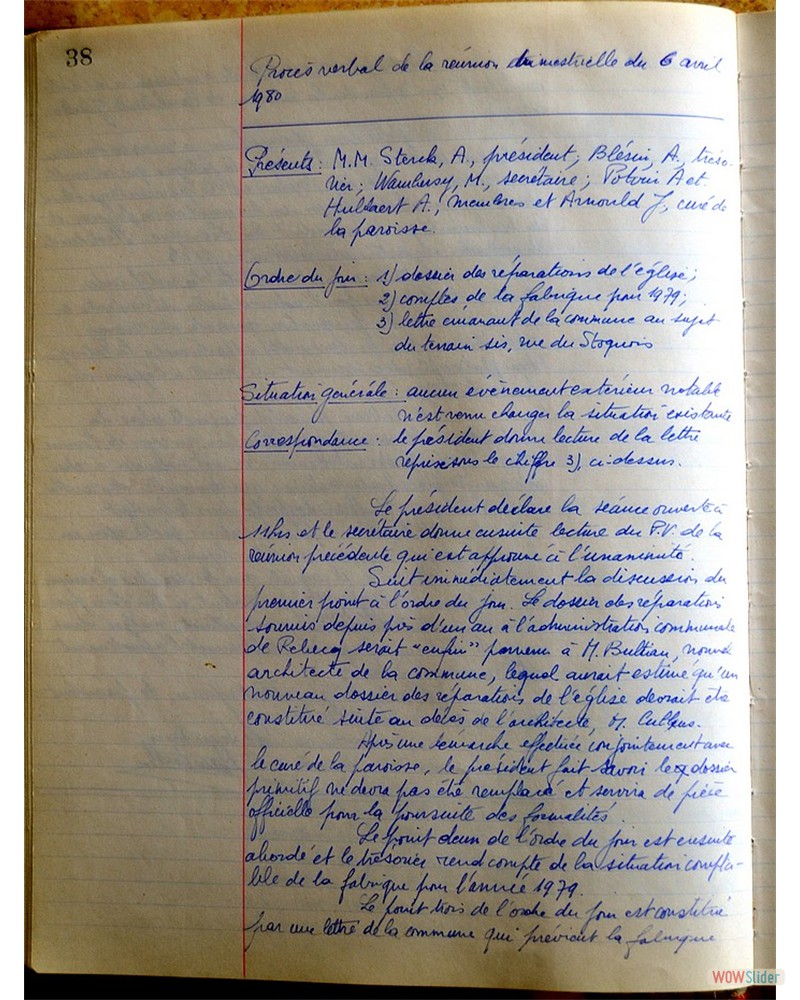 38
Procès verbal de la réunion trimestrielle du 6 avril
1980
Présents : M.M. Sterck, A., président; Blésin, A., tréso-
rier; , M., secrétaire; Potvin A et
Hulbaert A., membres et Arnould J, curé de
la paroisse.
Ordre du jour : 1) dossier des réparations de l'église;
2) comptes de la fabrique pour 1979;
3) lettre émanant de la commune au sujet
du terrain sis, rue du Stoquois
Situation générale : aucun évènement extérieur notable
n'est venu changer la situation existante
Correspondance : le président donne lecture de la lettre
reprise sous le chiffre 3), ci-dessus.
Le président déclare la séance ouverte à
11hrs et le secrétaire donne ensuite lecture du P.V. de la
réunion précédente qui est approuvé à l'unanimité.
Suit immédiatement la discussion du
premier point à l'ordre du jour. Le dossier des réparations
soumis depuis près d'un an à l'administration communale
de Rebecq serait "enfin" parvenu à M. Bultiau, nouvel
architecte de la commune, lequel aurait estimé qu'un
nouveau dossier des réparations de l'église devrait être
constitué suite au décès de l'architecte, M. Cullus.
Après une démarche effectuée conjointement avec
le curé de la paroisse, le président fait savoir le dossier
primitif ne devra pas être remplacé et servira de pièce
officielle pour la poursuite des formalités.
Le point deux de l'ordre du jour est ensuite
abordé et le trésorier rend compte de la situation compta-
ble de la fabrique pour l'année 1979.
Le point trois de l'ordre du jour est constitué
par une lettre de la commune qui prévient la fabrique
WOWSlider